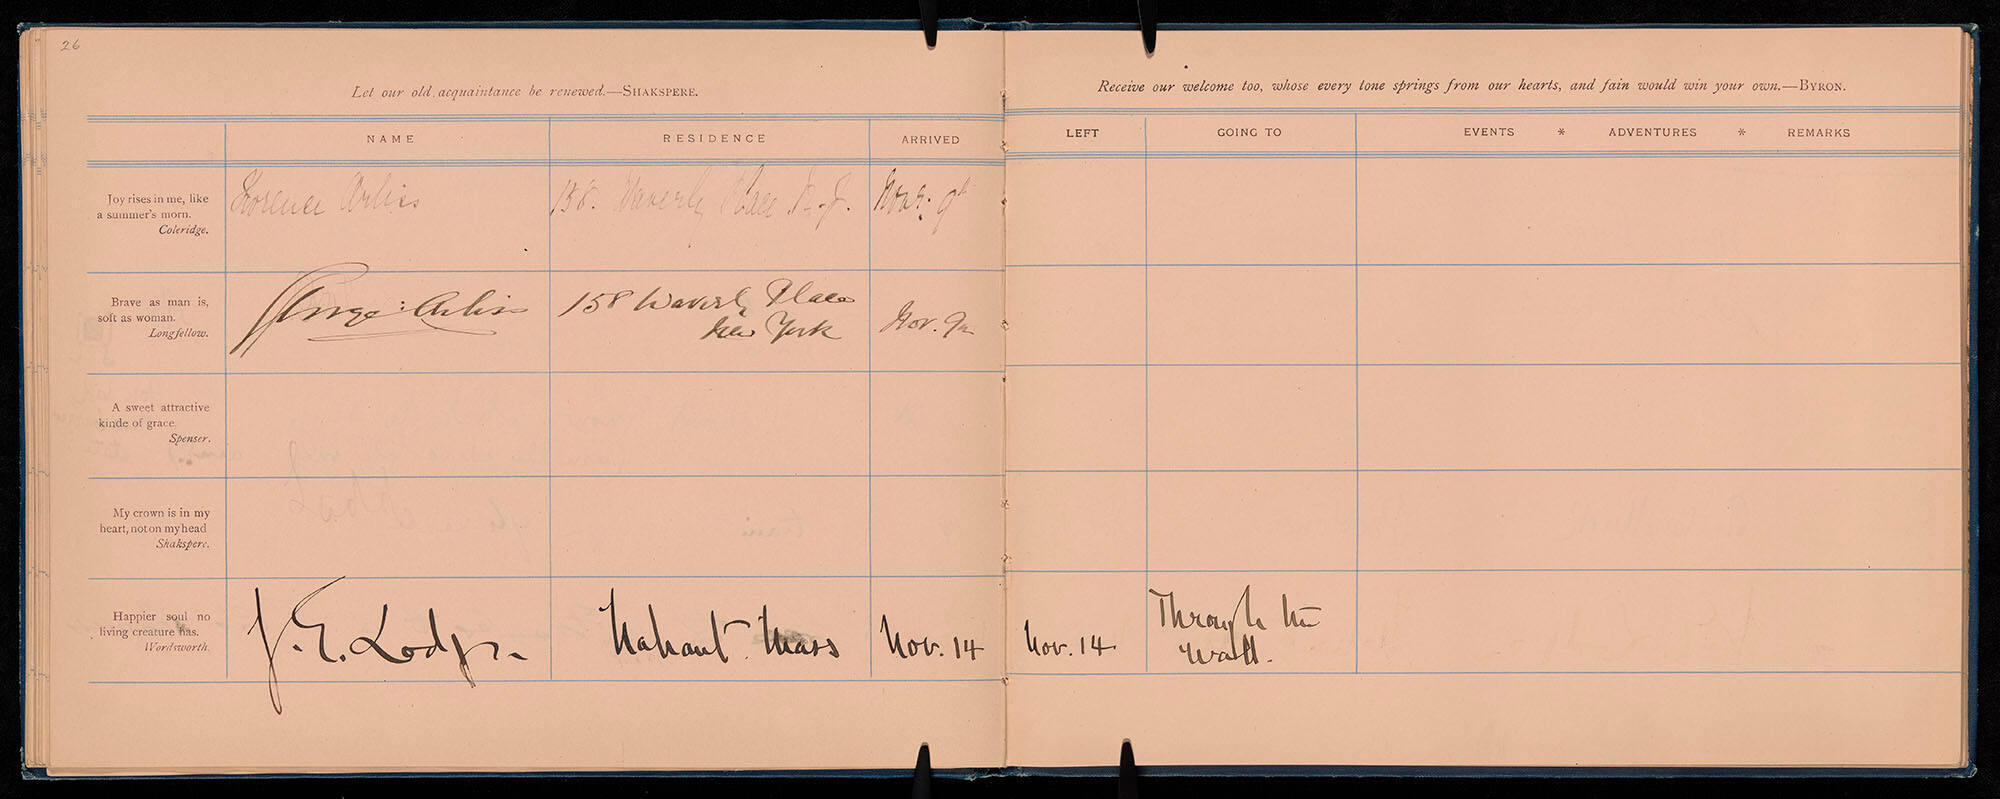 26
Let our old acquaintance be renewed.—SHAKSPERE.
Receive our welcome too, whose every tone springs from our hearts, and fain would win your own.—BYRON.
NAME RESIDENCE ARRIVED LEFT GOING TO EVENTS * ADVENTURES * REMARKS
Joy rises in me, like
a summer's morn.
Coleridge.
Florence Arliss 158. Waverly Place N.Y. Nov. 9th
Brave as man is,
soft as woman.
Longfellow.
George Arliss 158 Waverly Place
New York Nov. 9th
A sweet attractive
kinde of grace.
Spenser.
My crown is in my
heart, not on my head
Shakspere.
Happier soul no
living creature has.
Wordsworth.
J. E. Lodge. Nahant. Mass Nov. 14 Nov. 14 Through the
wall.